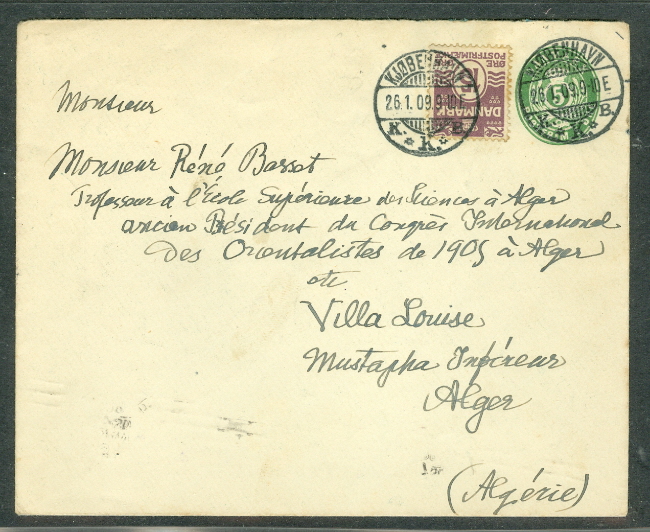 KJØBENHAVN
26.1.09.9-10 E
K. * K. * B.
15
ØRE
POSTFRIM
DANMARK
KJØBENHAVN
26.1.09.9-10 E
5
K. * B.
Monsieur
Monsieur Réné Basset
Professeur à l'École Supérieure des Sciences à Alger
ancien Président du Congrès International
des Orientalistes de 1905 à Alger
etc.
Villa Louise
Mustapha Inférieur
Alger
(Algérie)